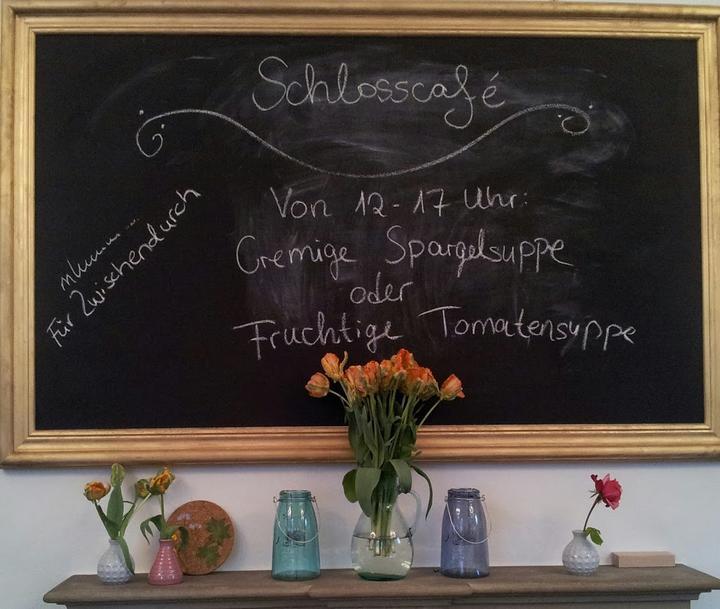 Schlosscafé
Von 12-17 Uhr:
Cremige Spargelsuppe
oder
Fruchtige Tomatensuppe
Für Zwischendurch